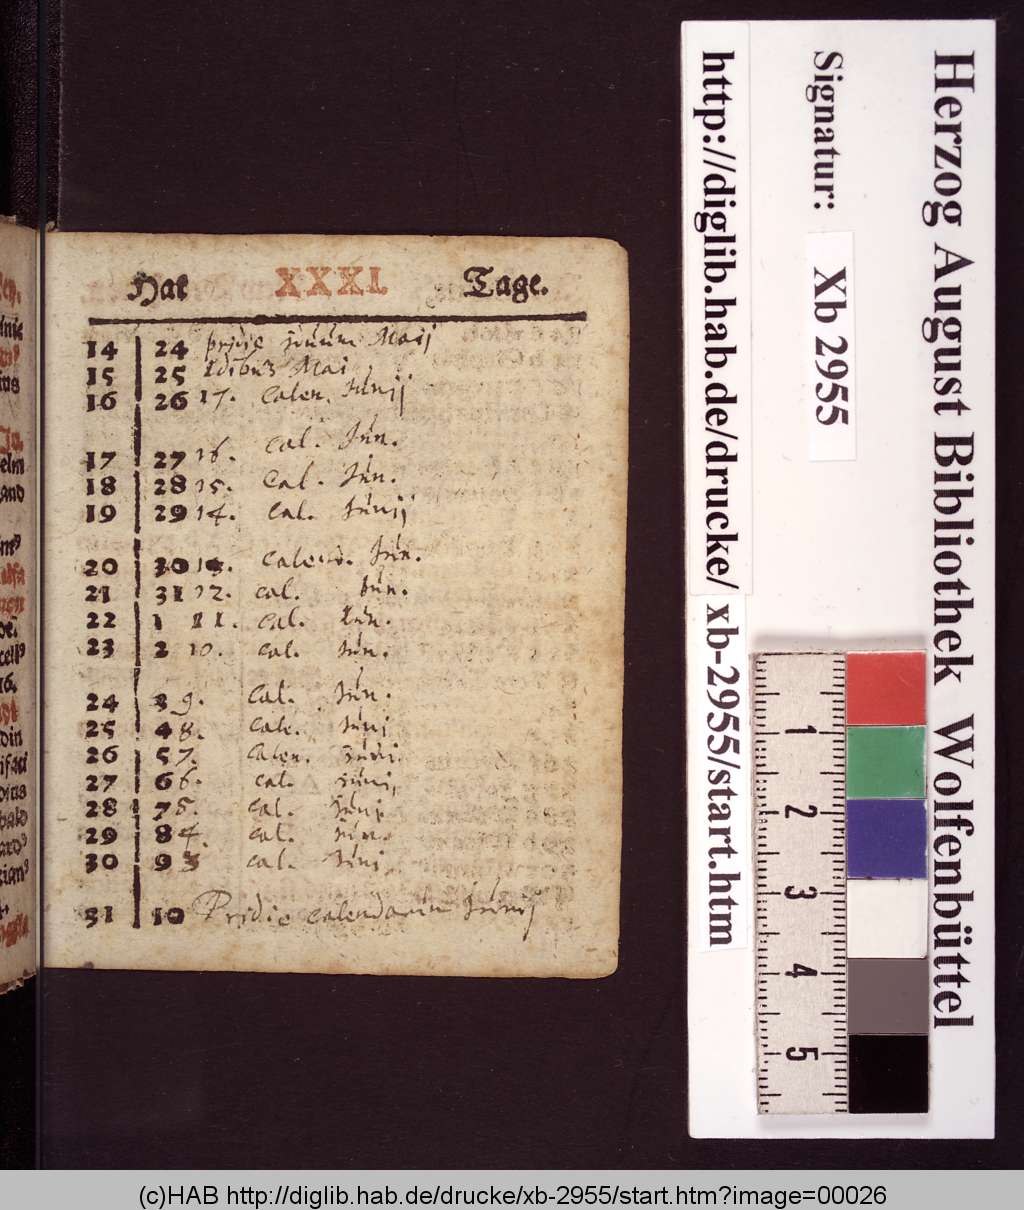 Hat XXXI. Tage.
14 24 pridie iduum Maij
15 25 Idibus Mai
16 26 17. Calen. Junij
17 27 16. cal. Jun.
18 28 15. Cal. Jun.
19 29 14. Cal. Junij
20 30 13. Calend. Jun.
21 31 12. cal. Jun.
22 1 11. cal. Jun.
23 2 10. cal. Jun.
24 3 9. Cal. Jun.
25 4 8. Cale. Junij
26 5 7. Calen. Juni.
27 6 6. cal. Juni,
28 7 5. cal. Juni
29 8 4. cal. Jun.
30 9 3 cal. Juni
31 10 Pridie calendarum Junij
Herzog August Bibliothek Wolfenbüttel
Signatur: Xb 2955
http://diglib.hab.de/drucke/ xb-2955/start.htm
1
2
3
4
5
(c)HAB http://diglib.hab.de/drucke/xb-2955/start.htm?image=00026